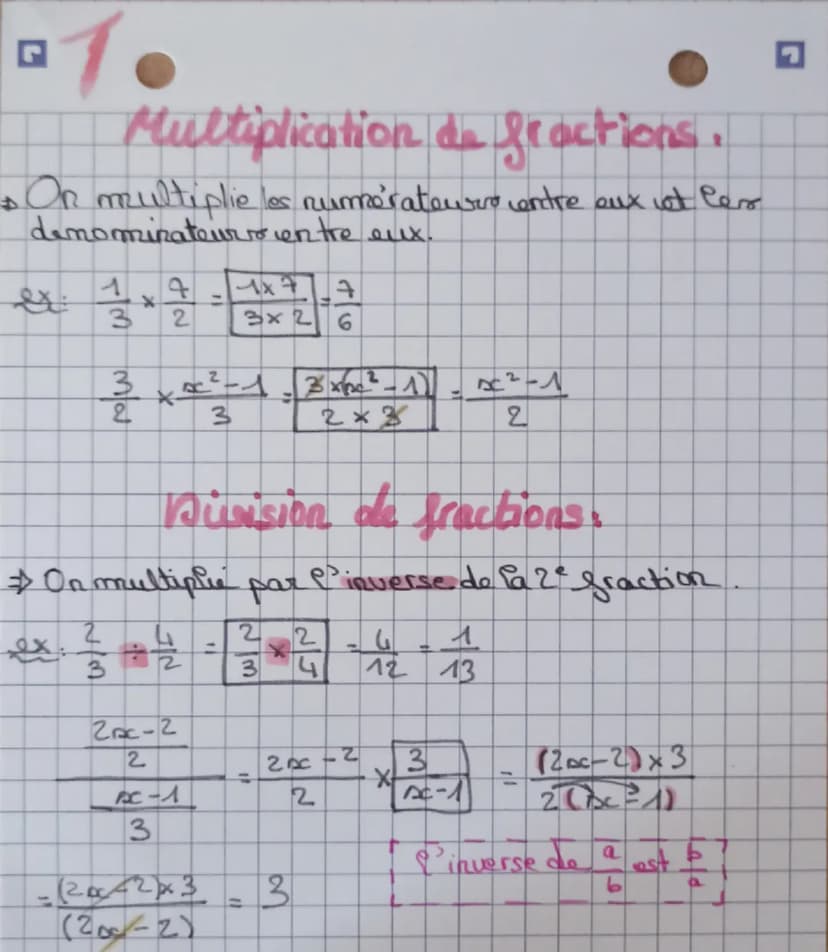 1
Multiplication de fractions.
→ On multiplie les numérateurs entre eux et les
denominateurs entre eux.
ex: 1/3 × 7/2 = (1×7)/(3×2) = 7/6
3/2 × (x²-1)/3 = (3×(x²-1))/(2×3) = (x²-1)/2
Division de fractions:
⇒ On multiplie par l'inverse de la 2e fraction.
ex: 2/3 ÷ 4/2 = 2/3 × 2/4 = 4/12 = 1/13
((2x-2)/2)/((x-1)/3) = (2x-2)/2 × 3/(x-1) = ((2x-2)×3)/(2(x-1))
l'inverse de a/b est b/a
= ((2x-2)×3)/(2x-2) = 3